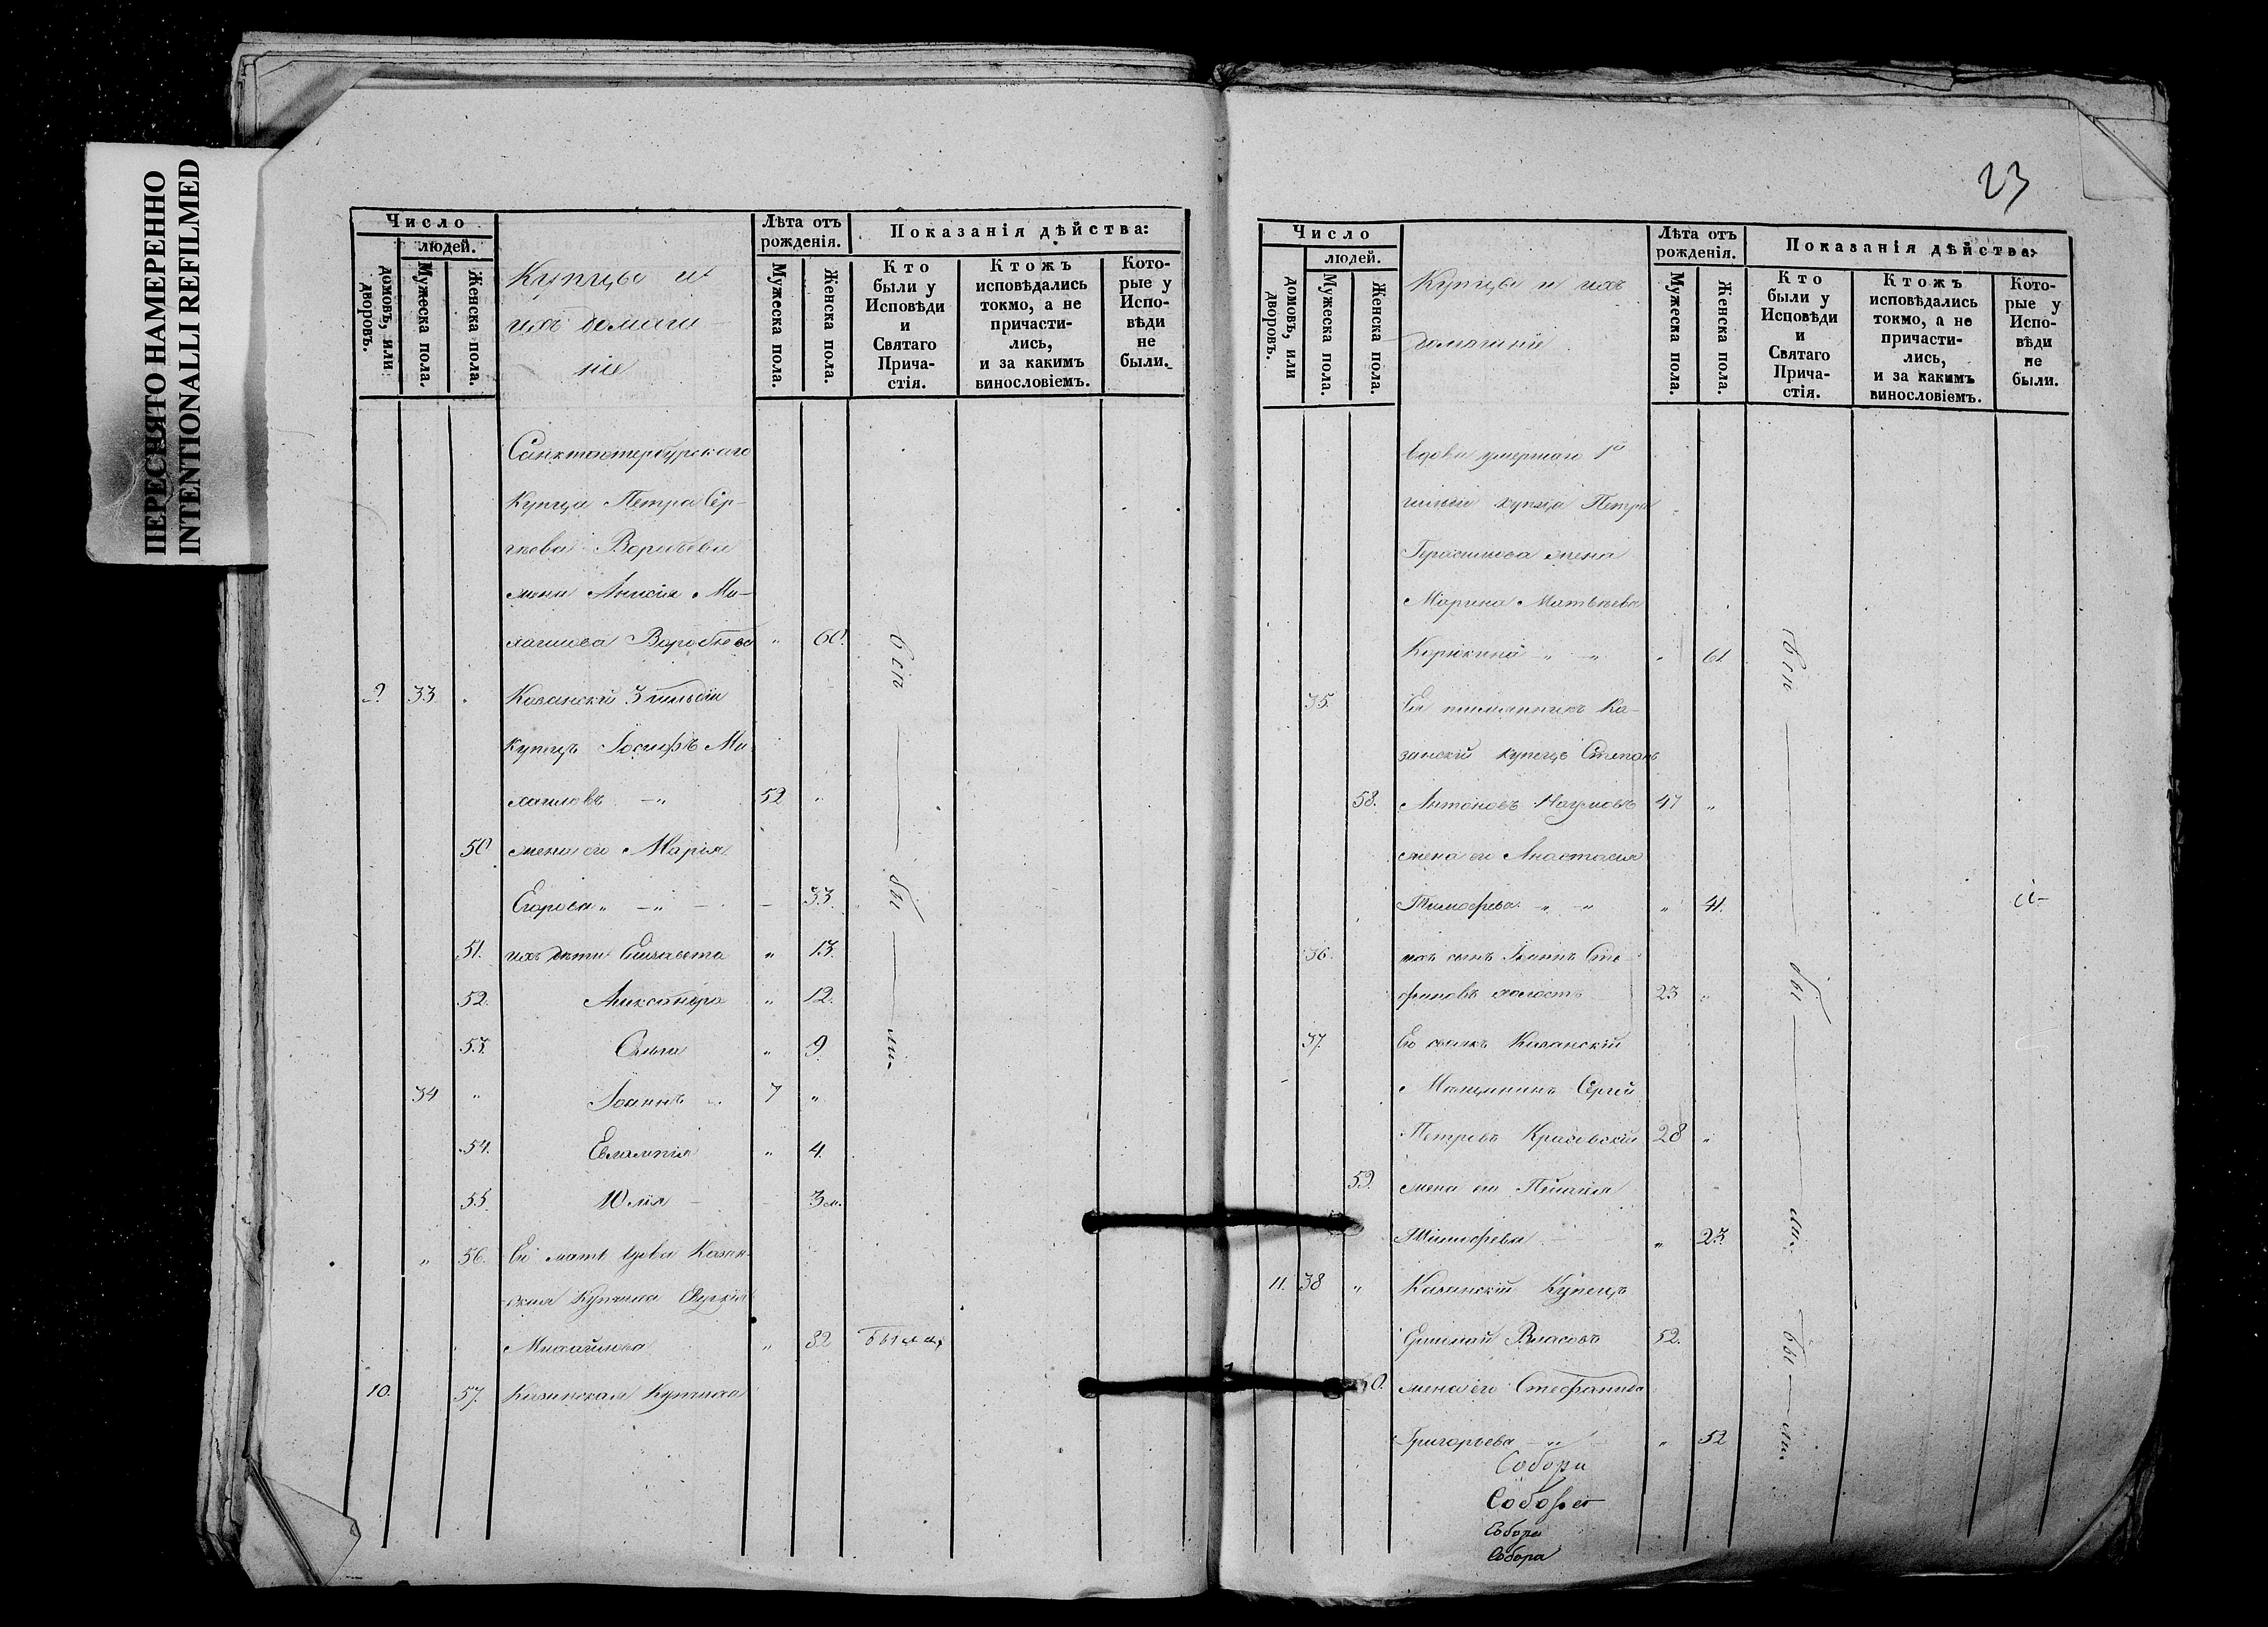 ПЕРЕСНЯТО НАМЕРЕННО
INTENTIONALLI REFILMED
Число
людей.
домовъ, или дворовъ.
Мужеска пола.
Женска пола.
Купцы и
ихъ домаш-
ніе
Лѣта отъ рожденія.
Мужеска пола.
Женска пола.
Показанія дѣйства:
Кто были у Исповѣди и Святаго Прича-стія.
Ктожъ исповѣдались токмо, а не причасти-лись, и за какимъ винословіемъ.
Кото-рые у Испо-вѣди не были.
Санктпетербурскаго
Купца Петра Сер-
гѣева Воробьева
жена Анисія Ми-
хайлова Воробьева " 60.
9 33 " Казанскій 3 гильдіи
Купецъ Іосифъ Ми-
хайловъ 52 "
50 жена его Марія
Егорова " 33.
51. ихъ дѣти Елизавета " 13.
52. Александра " 12.
53. Ольга " 9
34 " Іоаннъ 7 "
54. Евлампія " 4.
55. Юлія 3 м.
" 56. Его мать вдова Казан-
ская Купчиха
Михайлова " 82 была
10. 57. Казанская Купчиха
бы ли
23
Число
людей.
домовъ, или дворовъ.
Мужеска пола.
Женска пола.
Купцы и ихъ
домашніе
Лѣта отъ рожденія.
Мужеска пола.
Женска пола.
Показанія дѣйства:
Кто были у Исповѣди и Святаго Прича-стія.
Ктожъ исповѣдались токмо, а не причасти-лись, и за какимъ винословіемъ.
Кото-рые у Испо-вѣди не были.
вдова умершаго 1й
гильдіи купца Петра
Герасимова жена
Марина Матвѣева
Корюкина " " " 61
35. Ея племянникъ Ка-
занскій купецъ Степанъ
58. Антоновъ Наумовъ 47 "
жена его Анастасія
Тимофеева " " " 41.
36. ихъ сынъ Іоаннъ Сте-
фановъ холостъ 23 "
37. Его своякъ Казанскій
Мѣщанинъ Сергій
Петровъ Красовскій 28 "
59. жена его Пелагія
Тимофеева " 23
11. 38 " Казанскій Купецъ
Власовъ 52.
0. жена его Стефанида
Григорьева " " 52
бы ли
бы ли
Собора
Собора
Собора
Собора